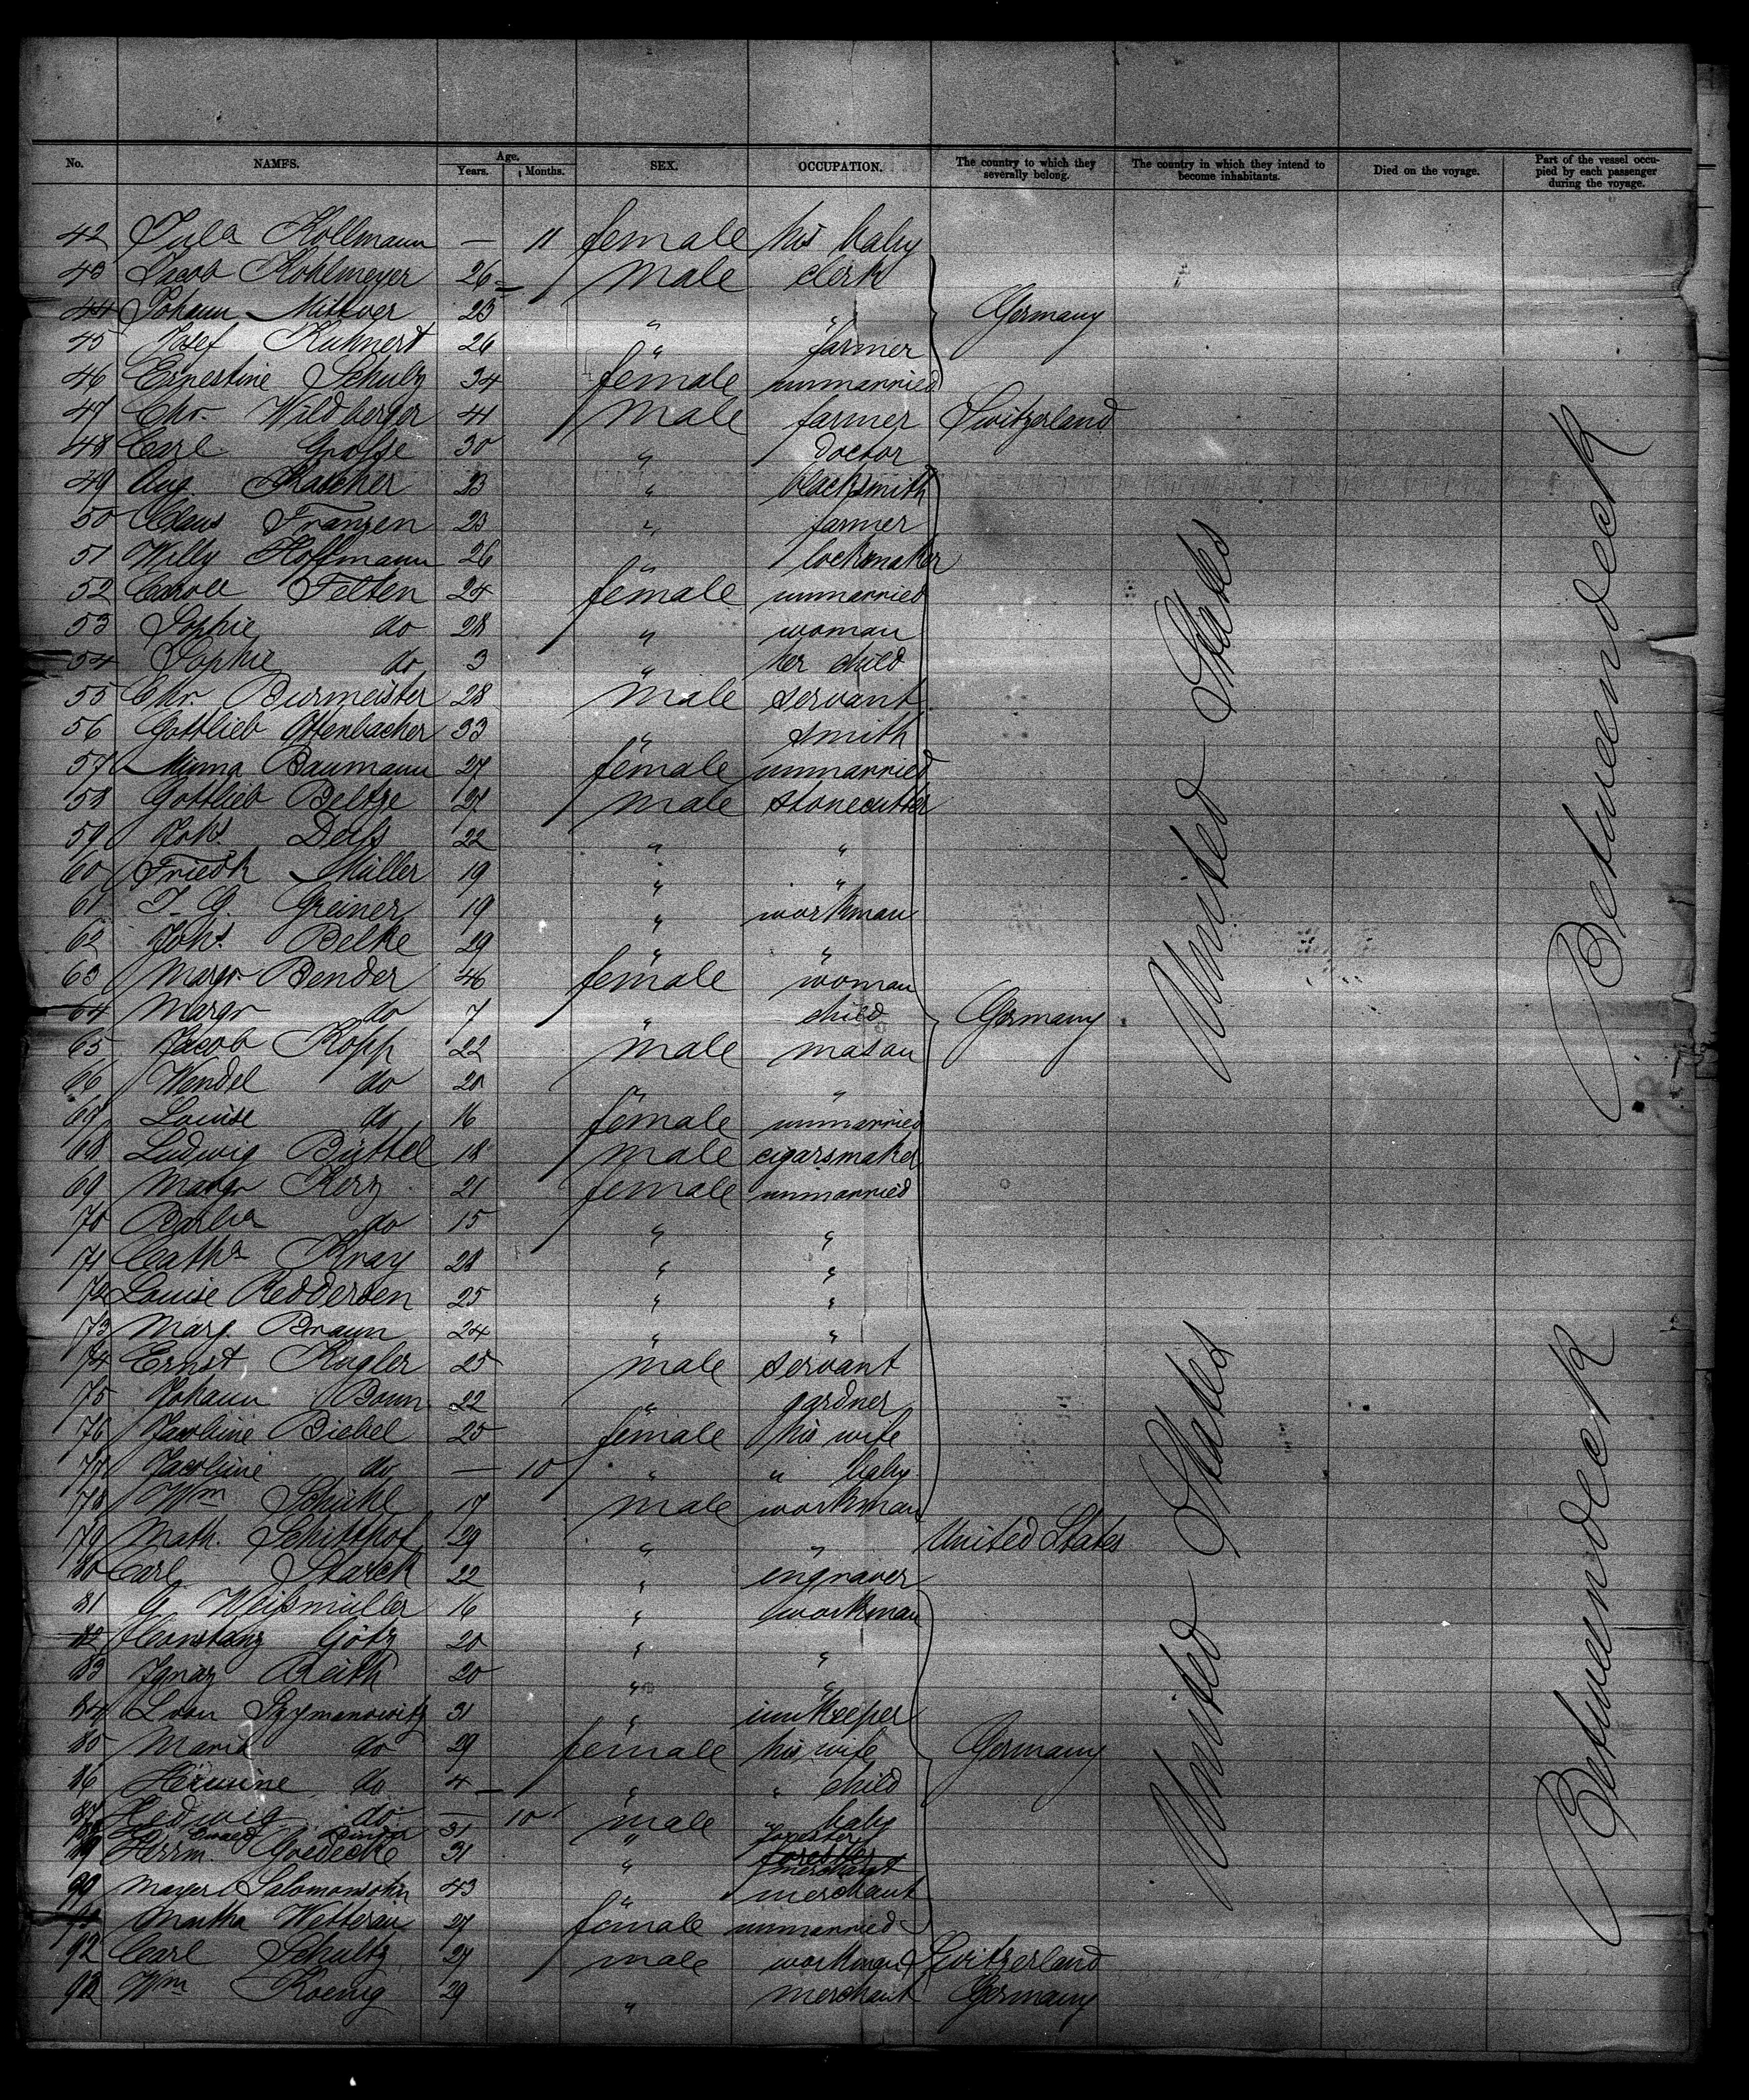 No. NAMES. Age. Years. Months. SEX. OCCUPATION. The country to which they severally belong. The country in which they intend to become inhabitants. Died on the voyage. Part of the vessel occupied by each passenger during the voyage.
42 Jula Kollmann — 11 female his baby
43 Jacob Kohlmeyer 26 male clerk
44 Johann Mittver 25 " " Germany
45 Josef Kuhnert 26 " farmer
46 Ernestine Schulz 34 female unmarried
47 Chr. Wildberger 41 male farmer Switzerland
48 Carl Grosse 30 " doctor
49 Aug. Kascher 23 " blacksmith
50 Claus Franzen 23 " farmer
51 Willy Hoffmann 26 " lockmaker
52 Caroll Felten 24 female unmarried
53 Sophie do 28 " woman
54 Sophie do 3 " her child
55 Chr. Burmeister 28 male servant
56 Gottlieb Offenbacher 33 " smith
57 Minna Baumann 27 female unmarried
58 Gottlieb Beltze 27 male stonecutter
59 Johs. 22 " "
60 Friedk Müller 19 " "
61 J. G. Greiner 19 " workman
62 Johs. Belke 29 " "
63 Margr. Bender 46 female woman
64 Margr do 7 " child Germany
65 Jacob Kopp 22 male mason
66 Wendel do 20 " "
67 Louise do 16 female unmarried
68 Ludwig Büttel 18 male cigarsmaker
69 Margr Kerz 21 female unmarried
70 Barba do 15 " "
71 Catha Kray 28 " "
72 Louise Reddersen 25 " "
73 Marg. Braun 24 " "
74 Ernst Kugler 25 male servant
75 Johann Bonn 22 " gardner
76 Jacobine Biebel 25 female his wife
77 Jacobine do — 10 " " baby
78 Wm Schükl 17 male workman
79 Math. Schitthof 29 " " United States
80 Carl Starck 22 " engraver
81 G Weißmüller 16 " workman
82 Constanz Götz 20 " "
83 Ignaz Reith 20 " "
84 Leon Szymanowitz 31 " innkeeper
85 Maria do 29 female his wife Germany
86 Hermine do 4 " " child
87 Hedwig do — 10 male " baby
88 Ewald 31 " forester
89 Herrm. Goedecke 31 " merchant
90 Mayer Salomonsohn 43 " merchant
91 Martha Wetterau 27 female unmarried
92 Carl Schultz 27 male workman Switzerland
93 Wm Koenig 29 " merchant Germany
United States
United States
Betweendeck
Betweendeck